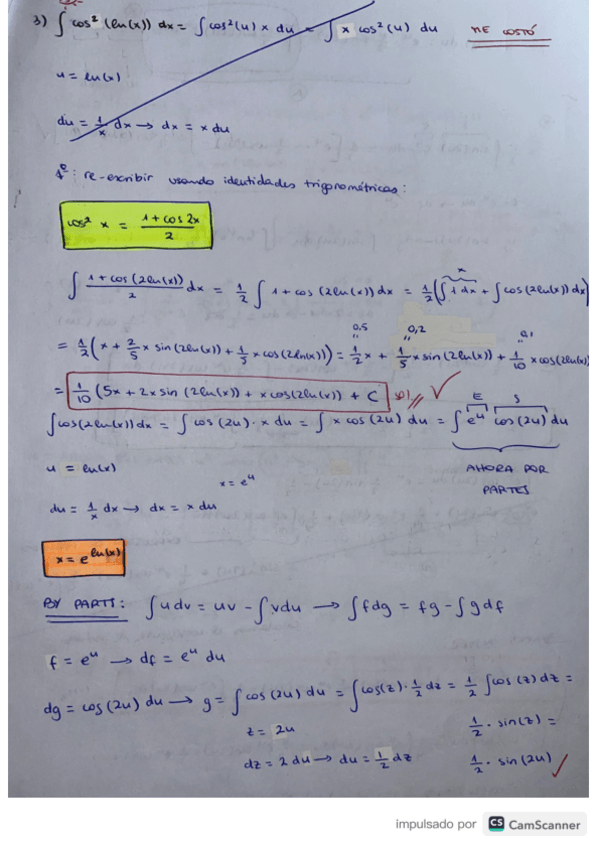 3) ∫ cos² (ln(x)) dx = ∫ cos²(u) x du = ∫ x cos²(u) du   ME COSTÓ
u = ln(x)
du = 1/x dx → dx = x du
1º: re-escribir usando identidades trigonométricas:
cos² x = (1 + cos 2x)/2
∫ (1 + cos (2ln(x)))/2 dx = 1/2 ∫ 1 + cos (2ln(x)) dx = 1/2 (∫ 1 dx + ∫ cos(2ln(x)) dx)
x
0,5   0,2   0,1
= 1/2 (x + 2/5 x sin (2ln(x)) + 1/5 x cos(2ln(x))) = 1/2 x + 1/5 x sin(2ln(x)) + 1/10 x cos(2ln(x))
= 1/10 (5x + 2x sin (2ln(x)) + x cos(2ln(x)) + C sol // ✓
E   S
∫ cos(2ln(x)) dx = ∫ cos (2u) · x du = ∫ x cos (2u) du = ∫ e^u cos (2u) du
u = ln(x)   x = e^u   AHORA POR
PARTES
du = 1/x dx → dx = x du
x = e^ln(x)
BY PARTS: ∫ u dv = uv - ∫ v du → ∫ f dg = fg - ∫ g df
f = e^u → df = e^u du
dg = cos (2u) du → g = ∫ cos (2u) du = ∫ cos(z) · 1/2 dz = 1/2 ∫ cos (z) dz =
z = 2u   1/2 · sin(z) =
dz = 2 du → du = 1/2 dz   1/2 · sin (2u) ✓
impulsado por CS CamScanner